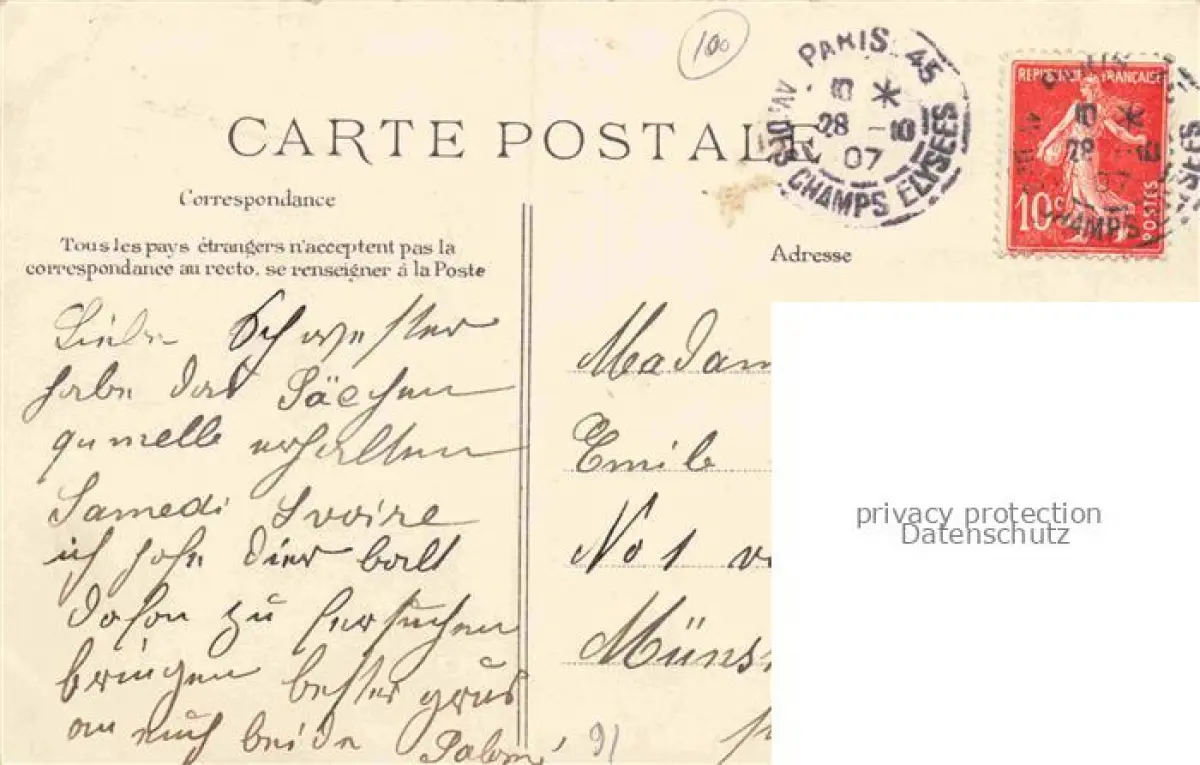 100
PARIS 45
AV. DES CHAMPS ELYSEES
28 - 10
07
REPUBLIQUE FRANÇAISE
10c
POSTES
CARTE POSTALE
Correspondance
Tous les pays étrangers n'acceptent pas la
correspondance au recto. se renseigner à la Poste
Adresse
Liebe Schwester
habe das Päcchen
erhalten
Samedi Svoire
ich hofe dier balt
dafon zu fersuchen
bringen bester grus
an euch beide
91
Madam
Emile
No 1
Müns
privacy protection
Datenschutz